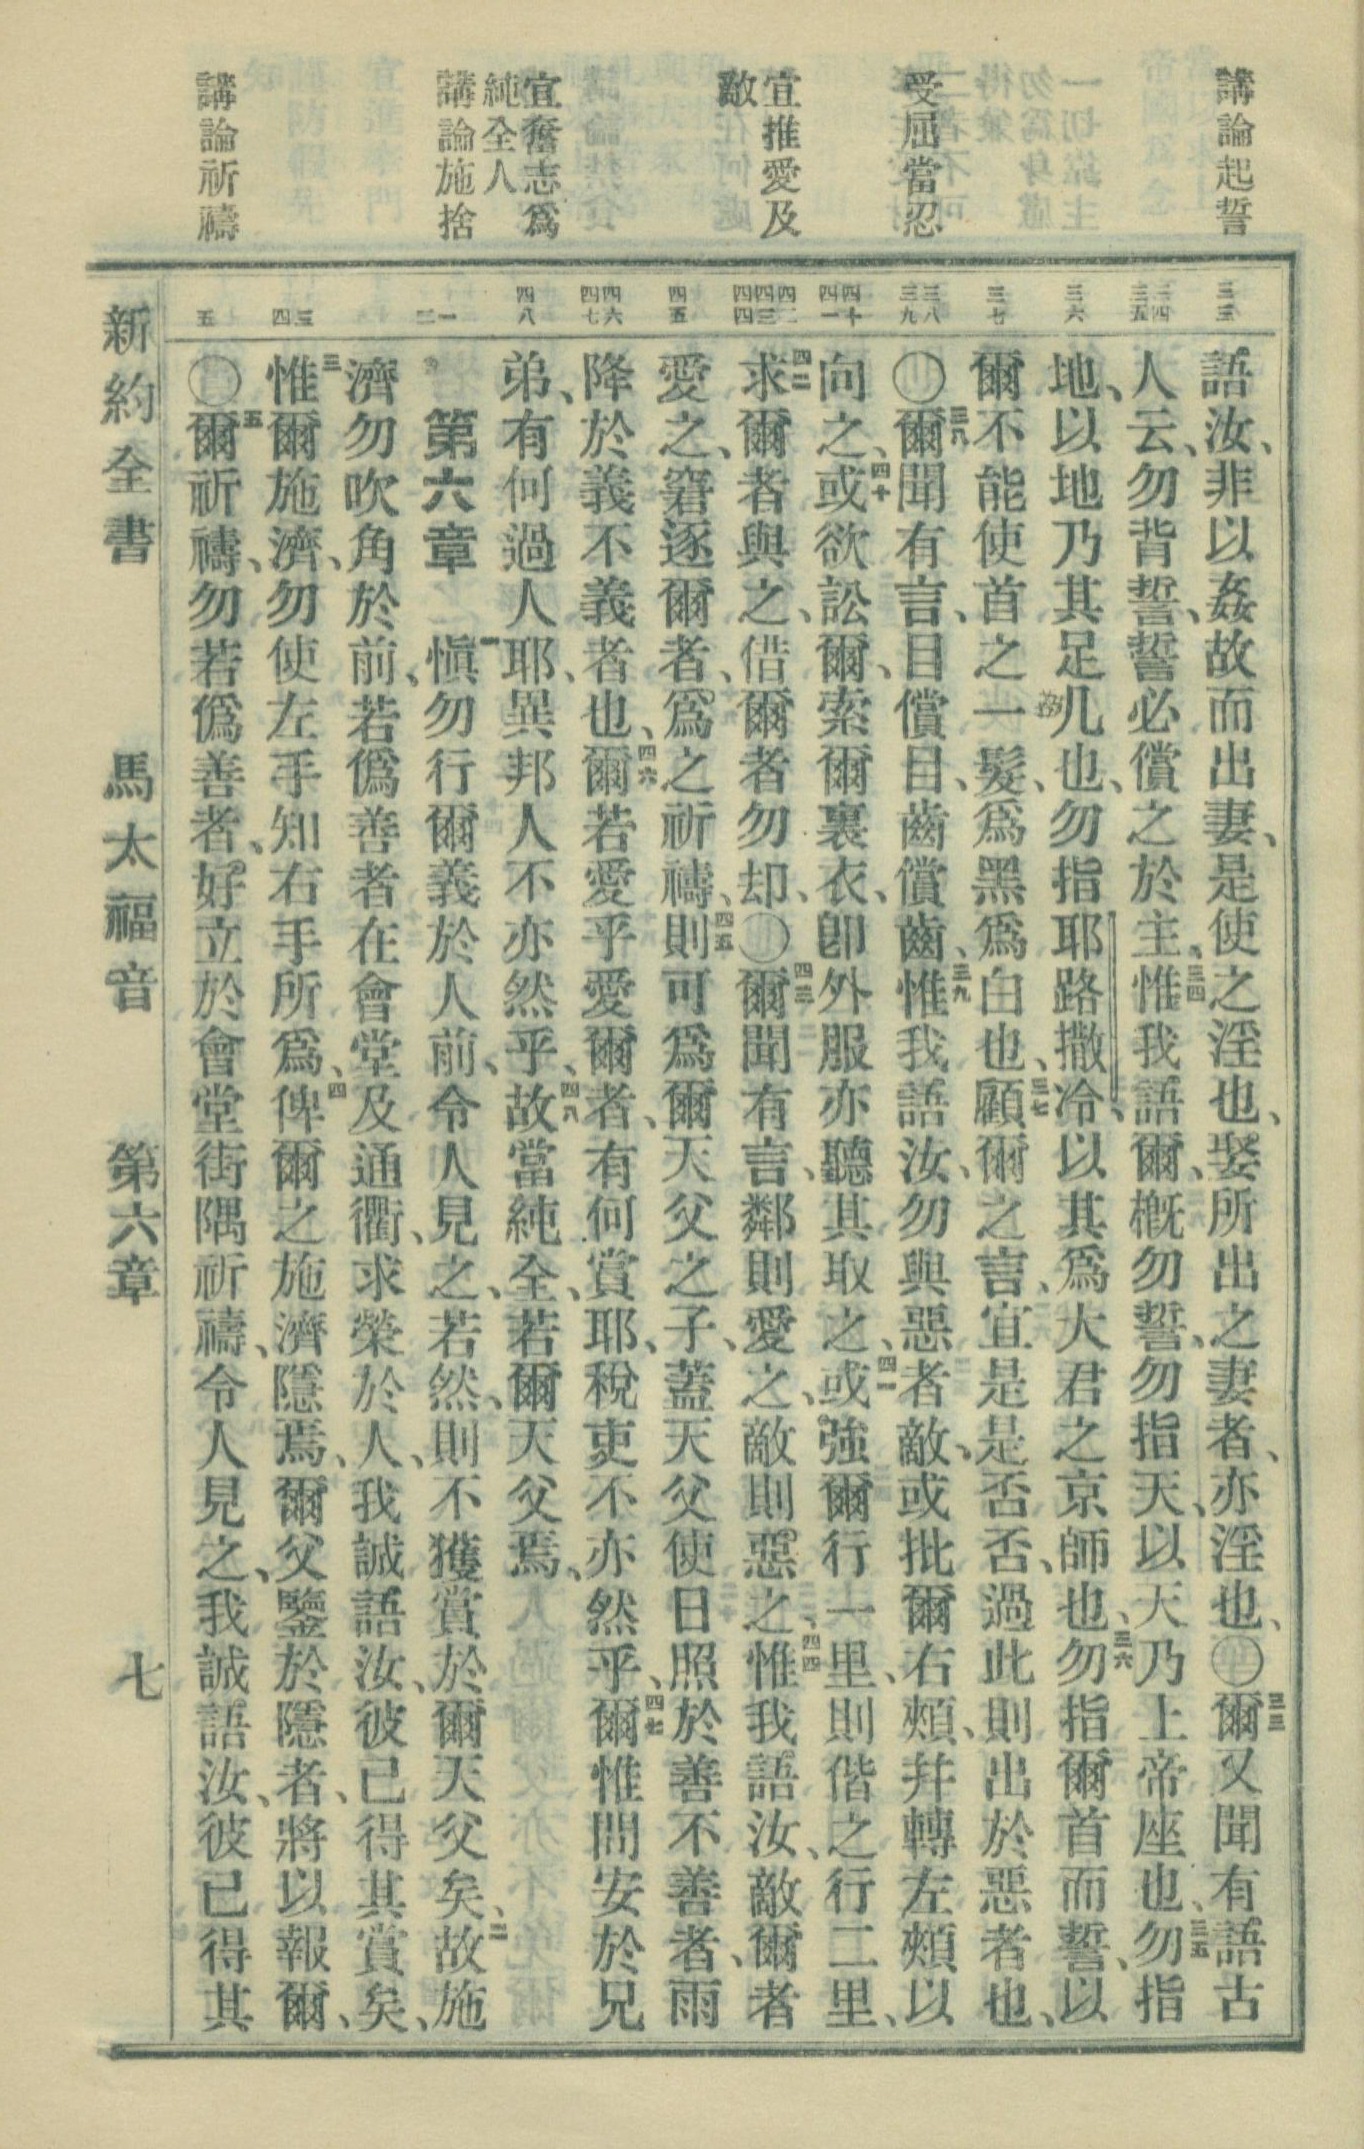 講論起誓
受屈當忍
宜推愛及
敵
宜奮志爲
純全人
講論施捨
講論祈禱
三三
三四
三五
三六
三七
三八
三九
四十
四一
四二
四三
四四
四五
四六
四七
四八
一
二
三
四
五
語汝、非以姦故而出妻、是使之淫也、娶所出之妻者、亦淫也、〇三三爾又聞有語古
人云、勿背誓、誓必償之於主、三四惟我語爾、槪勿誓、勿指天、以天乃上帝座也、三五勿指
地、以地乃其足几也、勿指耶路撒冷、以其爲大君之京師也、三六勿指爾首而誓、以
爾不能使首之一髮、爲黑爲白也、三七顧爾之言、宜是是否否、過此則出於惡者也、
〇三八爾聞有言、目償目、齒償齒、三九惟我語汝、勿與惡者敵、或批爾右頰、幷轉左頰以
向之、四十或欲訟爾、索爾裏衣、卽外服亦聽其取之、四一或強爾行一里、則偕之行二里、
四二求爾者與之、借爾者勿却、〇四三爾聞有言、鄰則愛之、敵則惡之、四四惟我語汝、敵爾者
愛之、窘逐爾者、爲之祈禱、四五則可爲爾天父之子、蓋天父使日照於善不善者、雨
降於義不義者也、四六爾若愛乎愛爾者、有何賞耶、稅吏不亦然乎、四七爾惟問安於兄
弟、有何過人耶、異邦人不亦然乎、四八故當純全、若爾天父焉、
第六章 一愼勿行爾義於人前、令人見之、若然、則不獲賞於爾天父矣、二故施
濟勿吹角於前、若僞善者在會堂及通衢、求榮於人、我誠語汝、彼已得其賞矣、
三惟爾施濟、勿使左手知右手所爲、四俾爾之施濟隱焉、爾父鑒於隱者、將以報爾、
〇五爾祈禱、勿若僞善者、好立於會堂街隅祈禱、令人見之、我誠語汝、彼已得其
新約全書 馬太福音 第六章 七